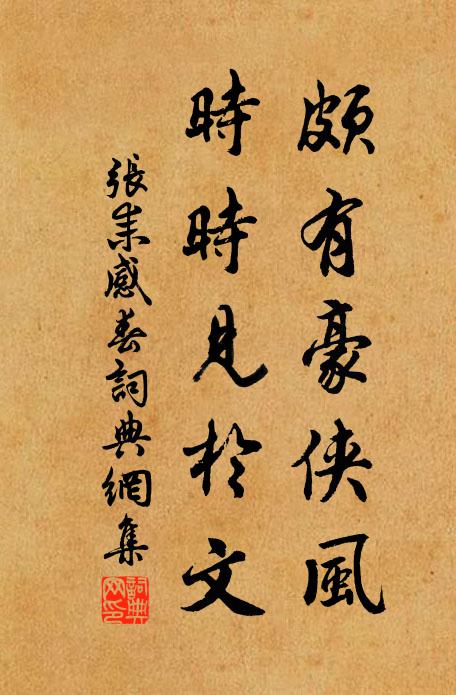 頗有豪俠風
時時見於文
張耒感春詞典網集
詞典网印